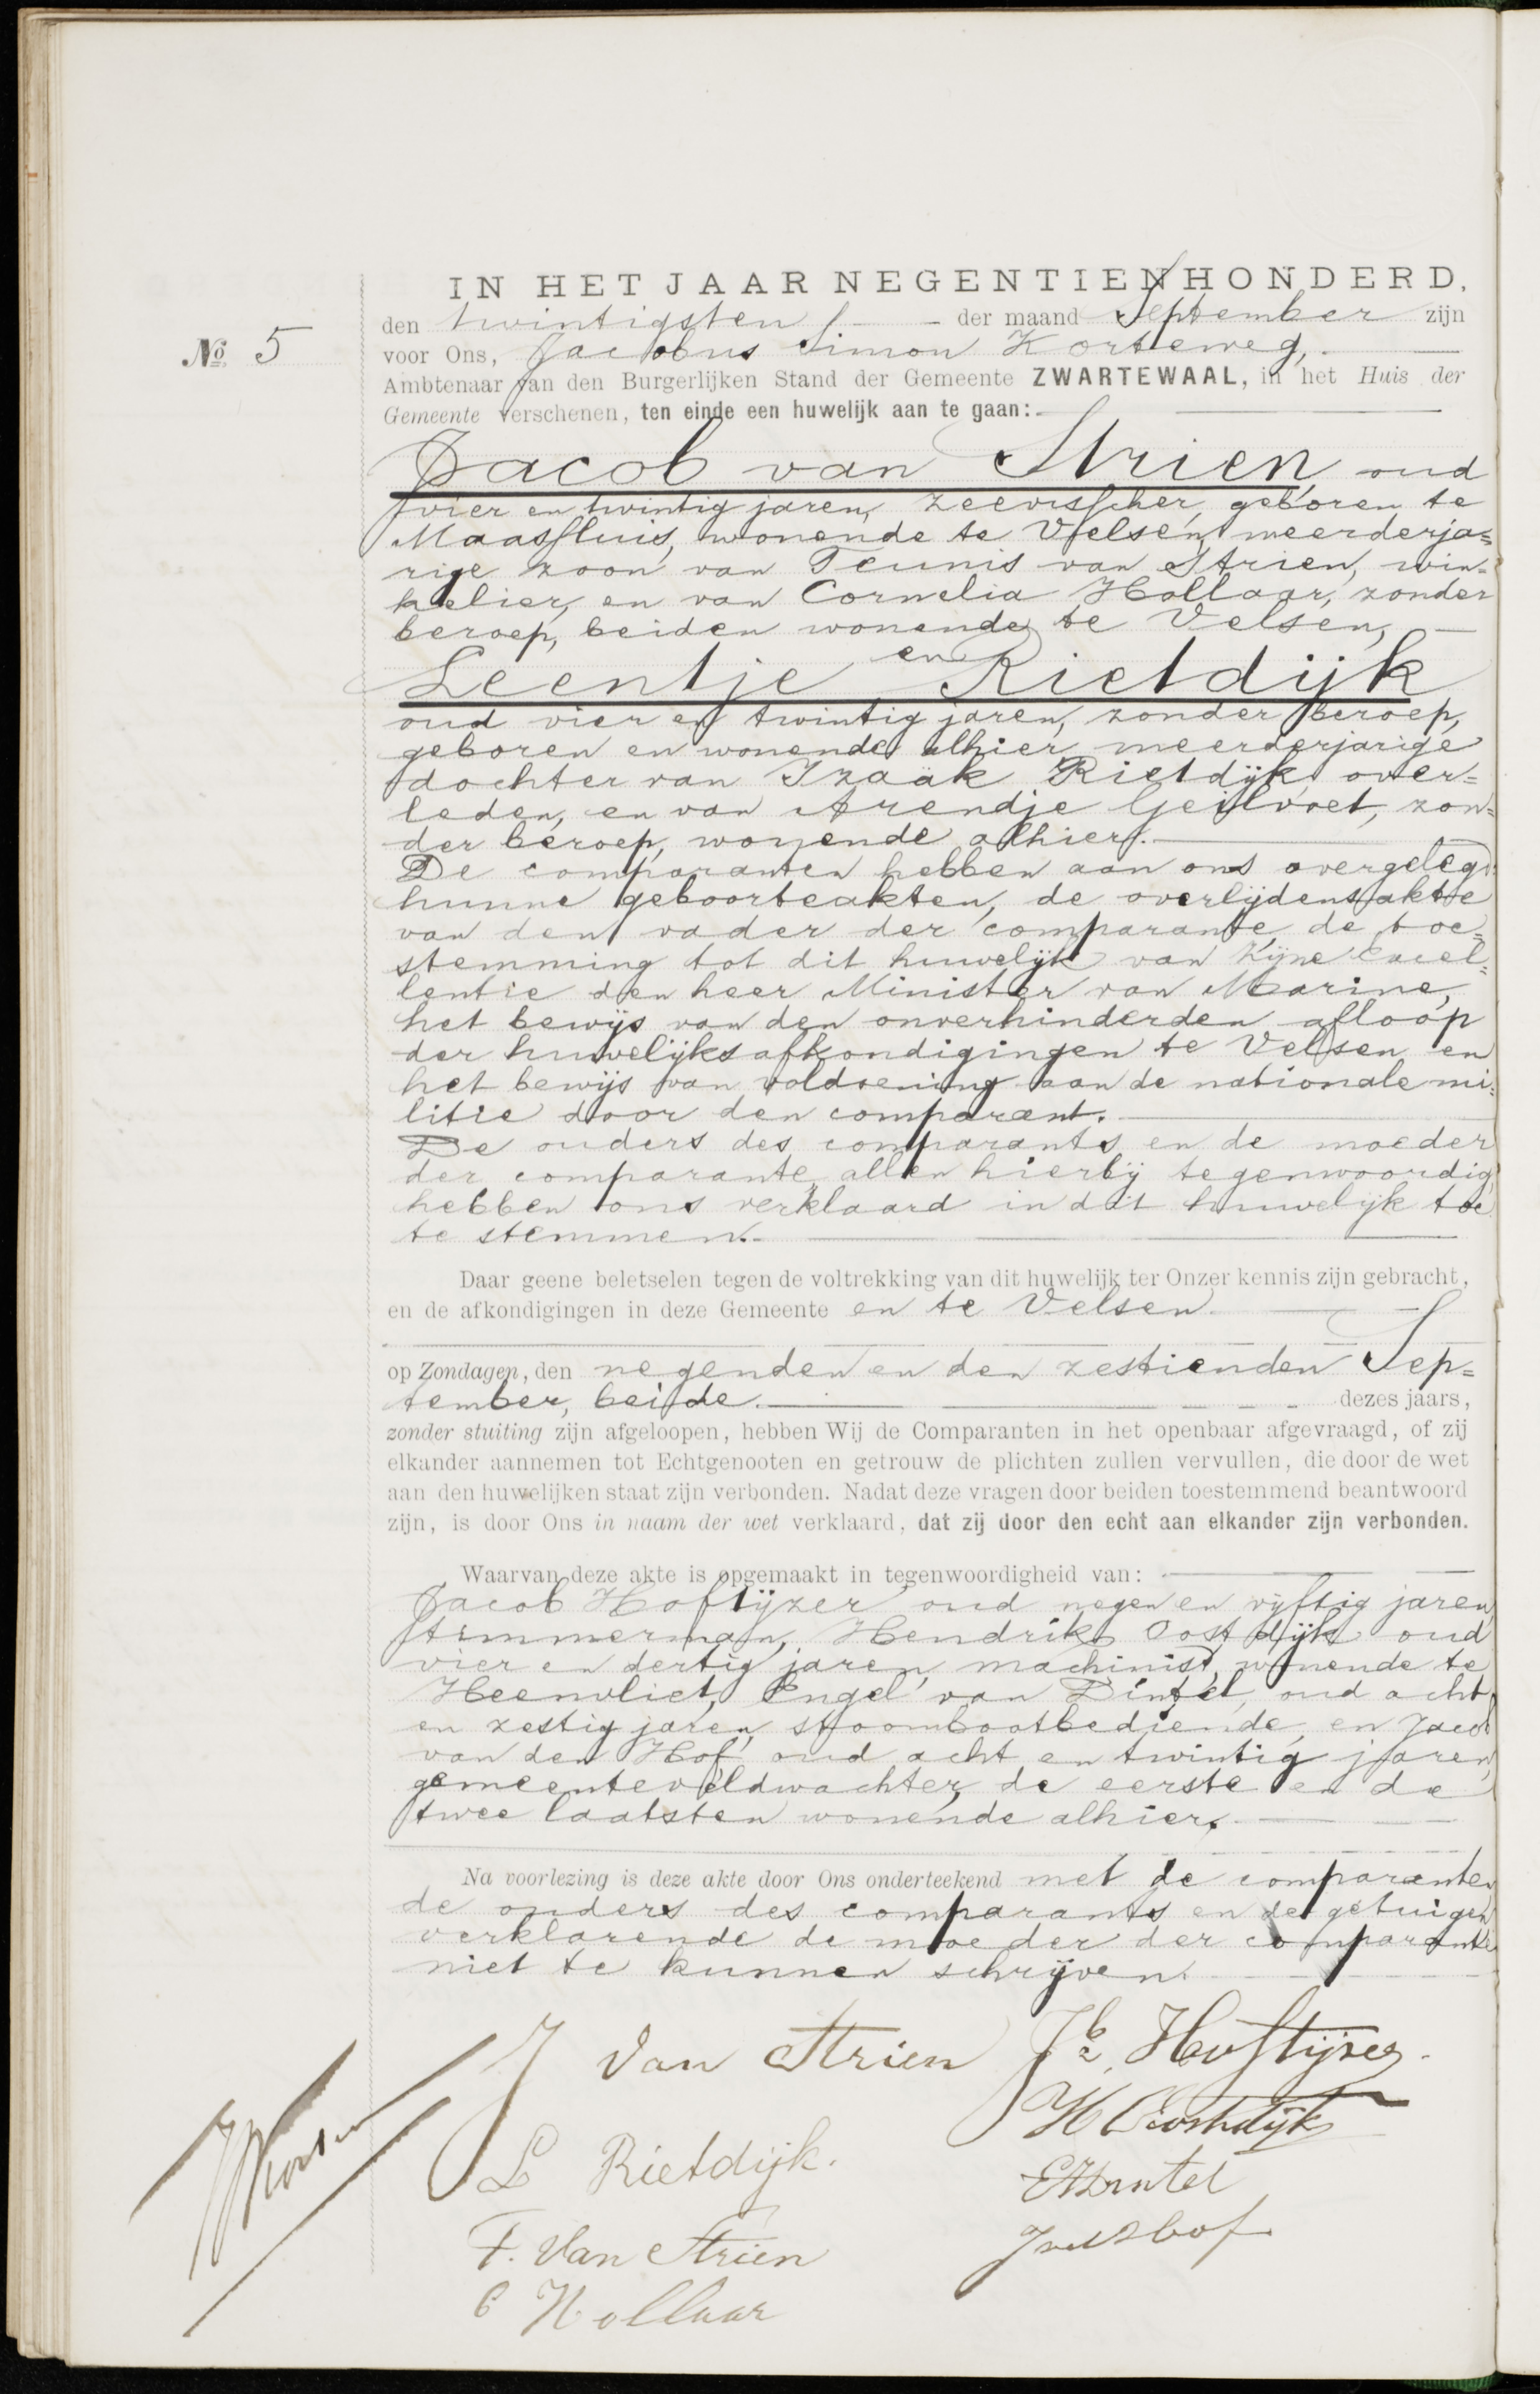 IN HET JAAR NEGENTIENHONDERD,
den twintigsten der maand September zijn
№ 5
voor Ons, Jacobus Simon Korteweg,
Ambtenaar van den Burgerlijken Stand der Gemeente ZWARTEWAAL, in het Huis der
Gemeente verschenen, ten einde een huwelijk aan te gaan:
Jacob van Strien oud
vier en twintig jaren, zeevisscher, geboren te
Maassluis, wonende te Velsen, meerderja=
rige zoon van Teunis van Strien, win=
kelier, en van Cornelia Hollaar, zonder
beroep, beiden wonende te Velsen,
en
Leentje Rietdijk
oud vier en twintig jaren, zonder beroep,
geboren en wonende alhier, meerderjarige
dochter van Izaäk Rietdijk, over=
leden, en van Arendje Geilvoet, zon=
der beroep, wonende alhier.
De comparanten hebben aan ons overgelegd
hunne geboorteakten, de overlijdensakte
van den vader der comparante, de toe=
stemming tot dit huwelijk van Zijne Excel=
lentie den heer Minister van Marine,
het bewijs van den onverhinderden afloop
der huwelijksafkondigingen te Velsen en
het bewijs van voldoening aan de nationale mi=
litie door den comparant.
De ouders des comparants en de moeder
der comparante, allen hierbij tegenwoordig,
hebben ons verklaard in dit huwelijk toe
te stemmen.
Daar geene beletselen tegen de voltrekking van dit huwelijk ter Onzer kennis zijn gebracht,
en de afkondigingen in deze Gemeente en te Velsen
op Zondagen, den negenden en den zestienden Sep=
tember, beide. dezes jaars,
zonder stuiting zijn afgeloopen, hebben Wij de Comparanten in het openbaar afgevraagd, of zij
elkander aannemen tot Echtgenooten en getrouw de plichten zullen vervullen, die door de wet
aan den huwelijken staat zijn verbonden. Nadat deze vragen door beiden toestemmend beantwoord
zijn, is door Ons in naam der wet verklaard, dat zij door den echt aan elkander zijn verbonden.
Waarvan deze akte is opgemaakt in tegenwoordigheid van:
Jacob Hoftijzer oud negen en vijftig jaren,
timmerman, Hendrik Oostdijk oud
vier en dertig jaren, machinist, wonende te
Heenvliet, Engel van Dintel, oud acht
en zestig jaren, stoombootbediende, en Jacob
van den Hof, oud acht en twintig jaren,
gemeenteveldwachter, de eerste en de
twee laatsten wonende alhier.
Na voorlezing is deze akte door Ons onderteekend met de comparanten
de ouders des comparants en de getuigen,
verklarende de moeder der comparante
niet te kunnen schrijven.
J van Strien
Jb Hoftijzer
H Oostdijk
L Rietdijk.
T. Van Strien
C Hollaar